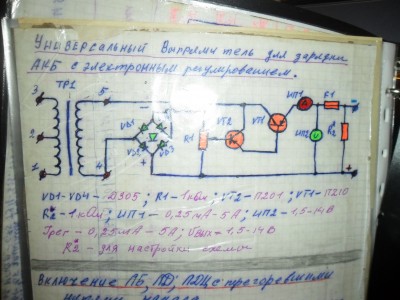 Универсальный выпрямитель для зарядки
АКБ с электронным регулированием.
3 ТР1 5
2
1 4
VD1 VD2 VD3
R1 VT2 VT1 ИП1 A F1
ИП2 V R2*
- +
VD1-VD4 - Д305; R1-1 кОм; VT2-П201; VT1-П210
R2*-1 кОм; ИП1- 0,25мА-5А; ИП2-1,5-14В
Iрег - 0,25мА-5А; Uвых-1,5-14В
R2* - для настройки схемы
Включение ЛБ, ЛД, ЛДЦ с прогоревшими